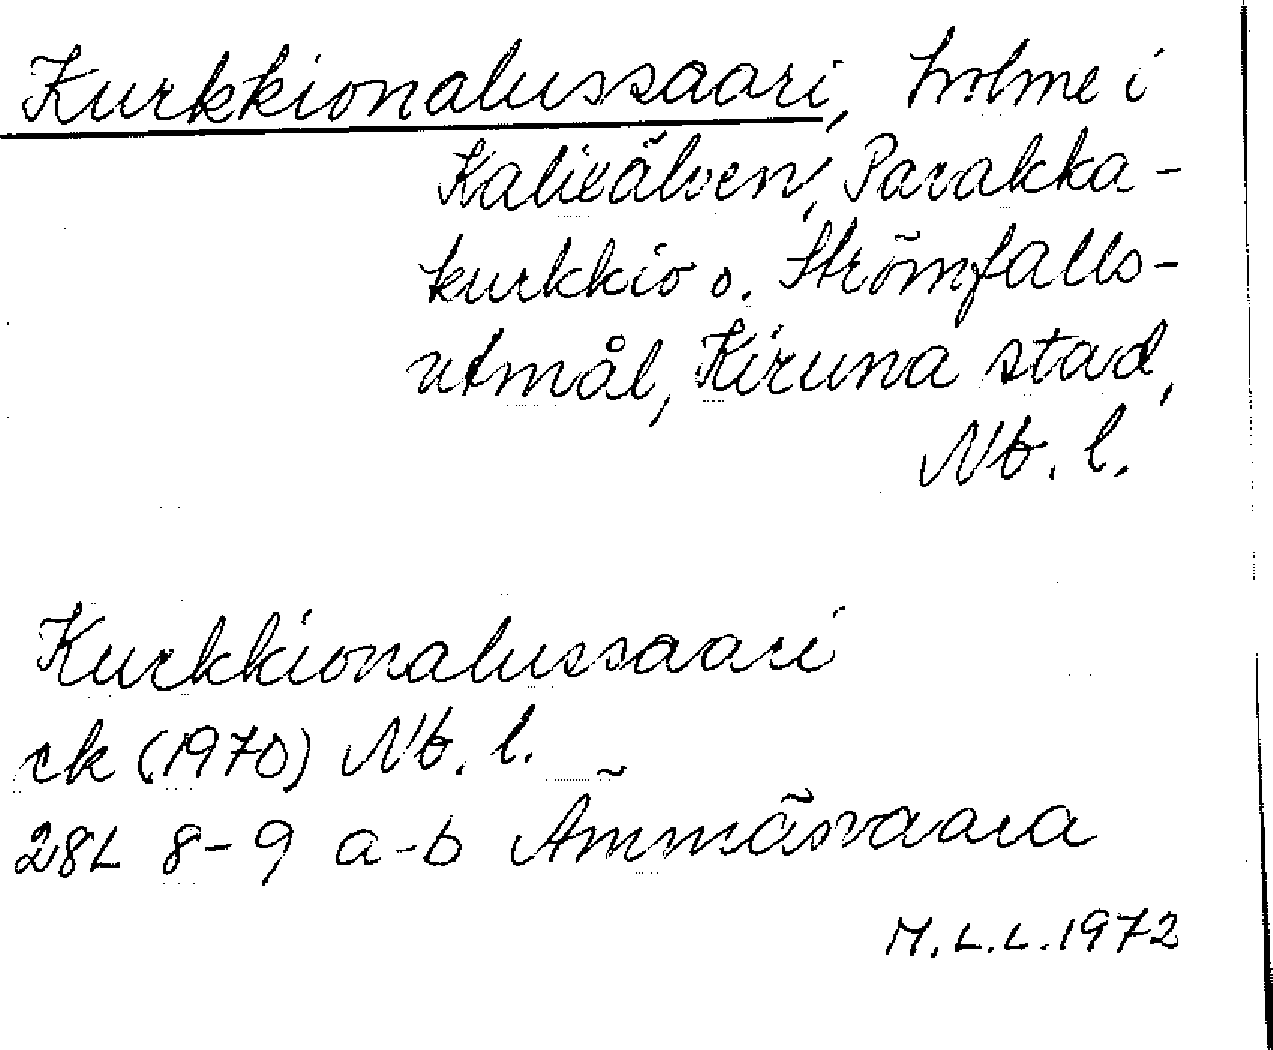 Kurkkionalussaari, holme i
Kalixälven, Parakka-
kurkkio o. Strömfalls-
utmål, Kiruna stad,
Nb. l.
Kurkkionalussaari
ek (1970) Nb. l.
28L 8-9 a-b Ämmäsvaara
M.L.L. 1972